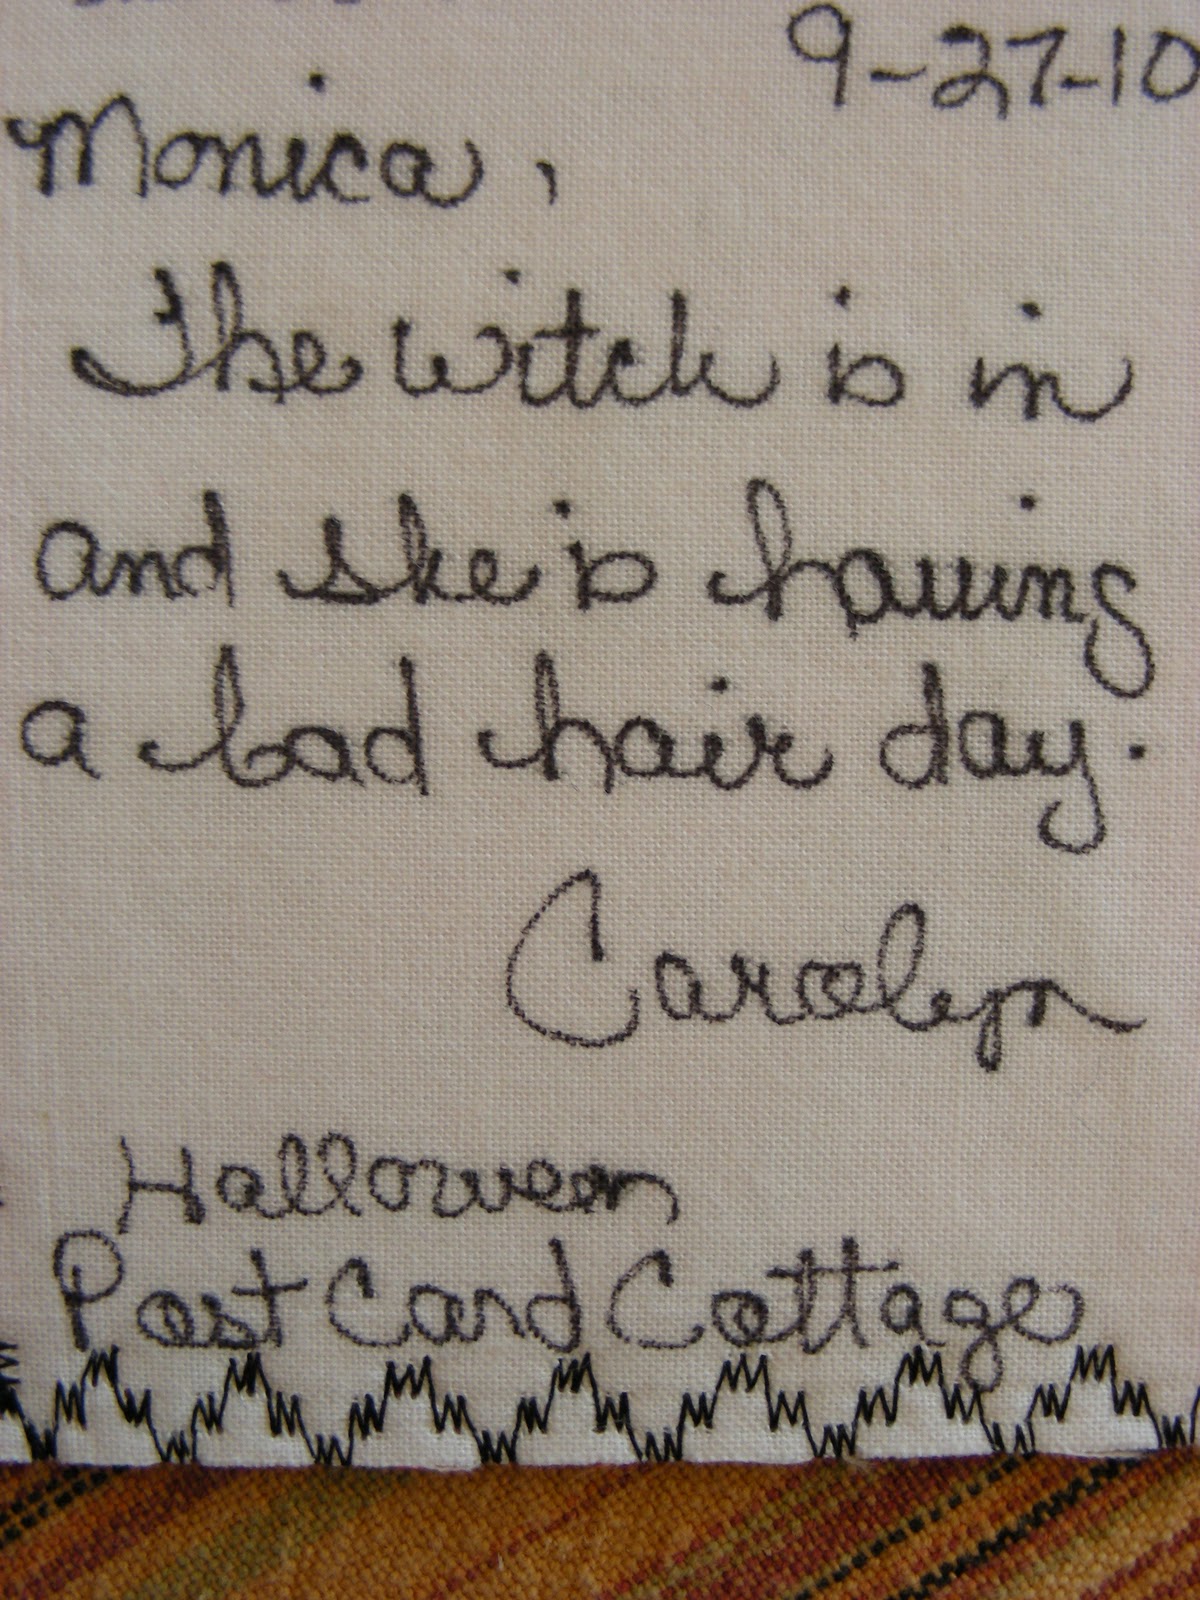 9-27-10
Monica,
The witch is in
and she is having
a bad hair day.
Carolyn
Halloween
Post Card Cottage